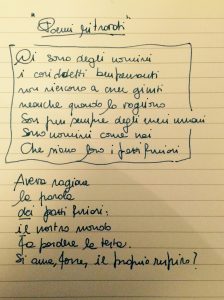 "Poemi ritrovati"
Ci sono degli uomini
i cosiddetti benpensanti
non riescono a esser giusti
neanche quando lo vogliono
Son pur sempre degli esseri umani
Sono uomini come noi
Che siano loro i pazzi furiosi
Aveva ragione
la parola
dei pazzi furiosi:
il nostro mondo
fa perdere la testa.
Si ama, forse, il proprio respiro?